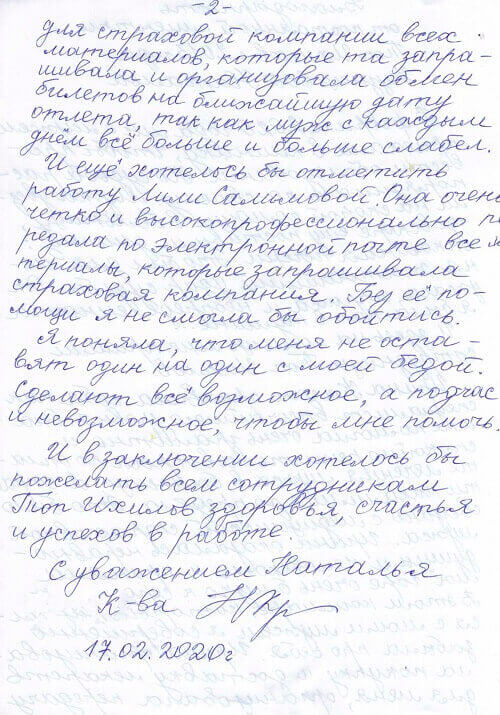 -2-
для страховой компании всех
материалов, которые та запра-
шивала и организовала обмен
билетов на ближайшую дату
отлета, так как муж с каждым
днём всё больше и больше слабел.
И ещё хотелось бы отметить
работу Лили Салимовой. Она очень
четко и высокопрофессионально пе
редала по электронной почте все м
териалы, которые запрашивала
страховая компания. Без её по-
мощи я не смогла бы обойтись.
Я поняла, что меня не оста-
вят один на один с моей бедой.
Сделают всё возможное, а подчас
и невозможное, чтобы мне помочь.
И в заключении хотелось бы
пожелать всем сотрудникам
Топ Ихилов здоровья, счастья
и успехов в работе.
С уважением Наталья
К-ва
17.02.2020г